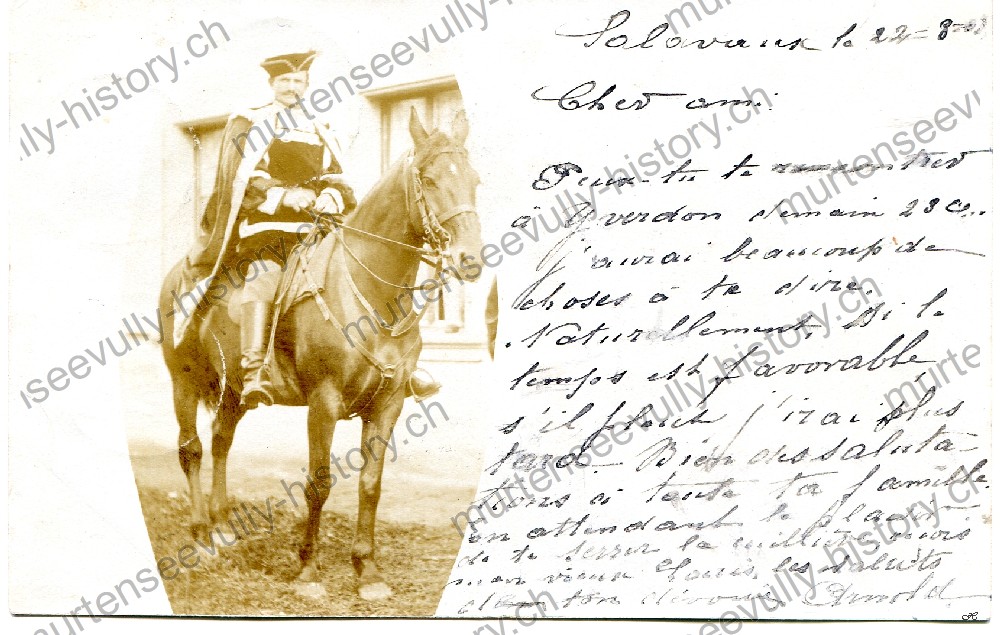 Salavaux le 22=3=
Cher ami.
Peux-tu te rencontrer
à Yverdon demain 23 c.
j'aurai beaucoup de
choses à te dire.
Naturellement, Si le
temps est favorable,
s'il pleut j'irai plus
tard. Bien des saluta-
tions à toute ta famille.
en attendant le plaisir
de te serrer la
mon vieux Louis, les saluts
de ton dévoué Arnold
murtenseevully-history.ch